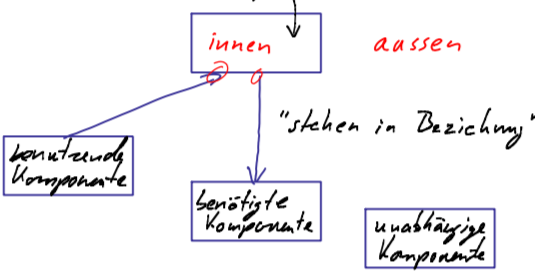 innen aussen
"stehen in Beziehung"
benutzende
Komponente
benötigte
Komponente
unabhängige
Komponente